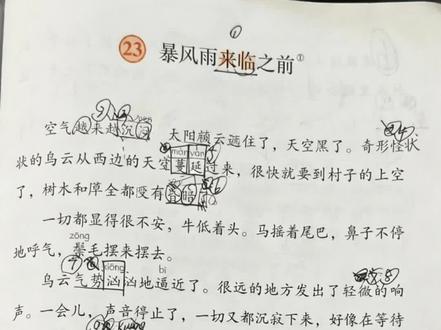 ①
23 暴风雨来临之前①
空气越来越沉闷 太阳被云遮住了，天空黑了。奇形怪状
màn yán
状的乌云从西边的天空蔓延过来，很快就要到村子的上空
了，树木和草全都没有 暗
一切都显得很不安，牛低着头。马摇着尾巴，鼻子不停
zōng
地呼气，鬃毛摆来摆去。
xiōng bī
乌云气势汹汹地逼近了。很远的地方发出了轻微的响
声。一会儿，声音停止了，一切又都沉寂下来，好像在等待